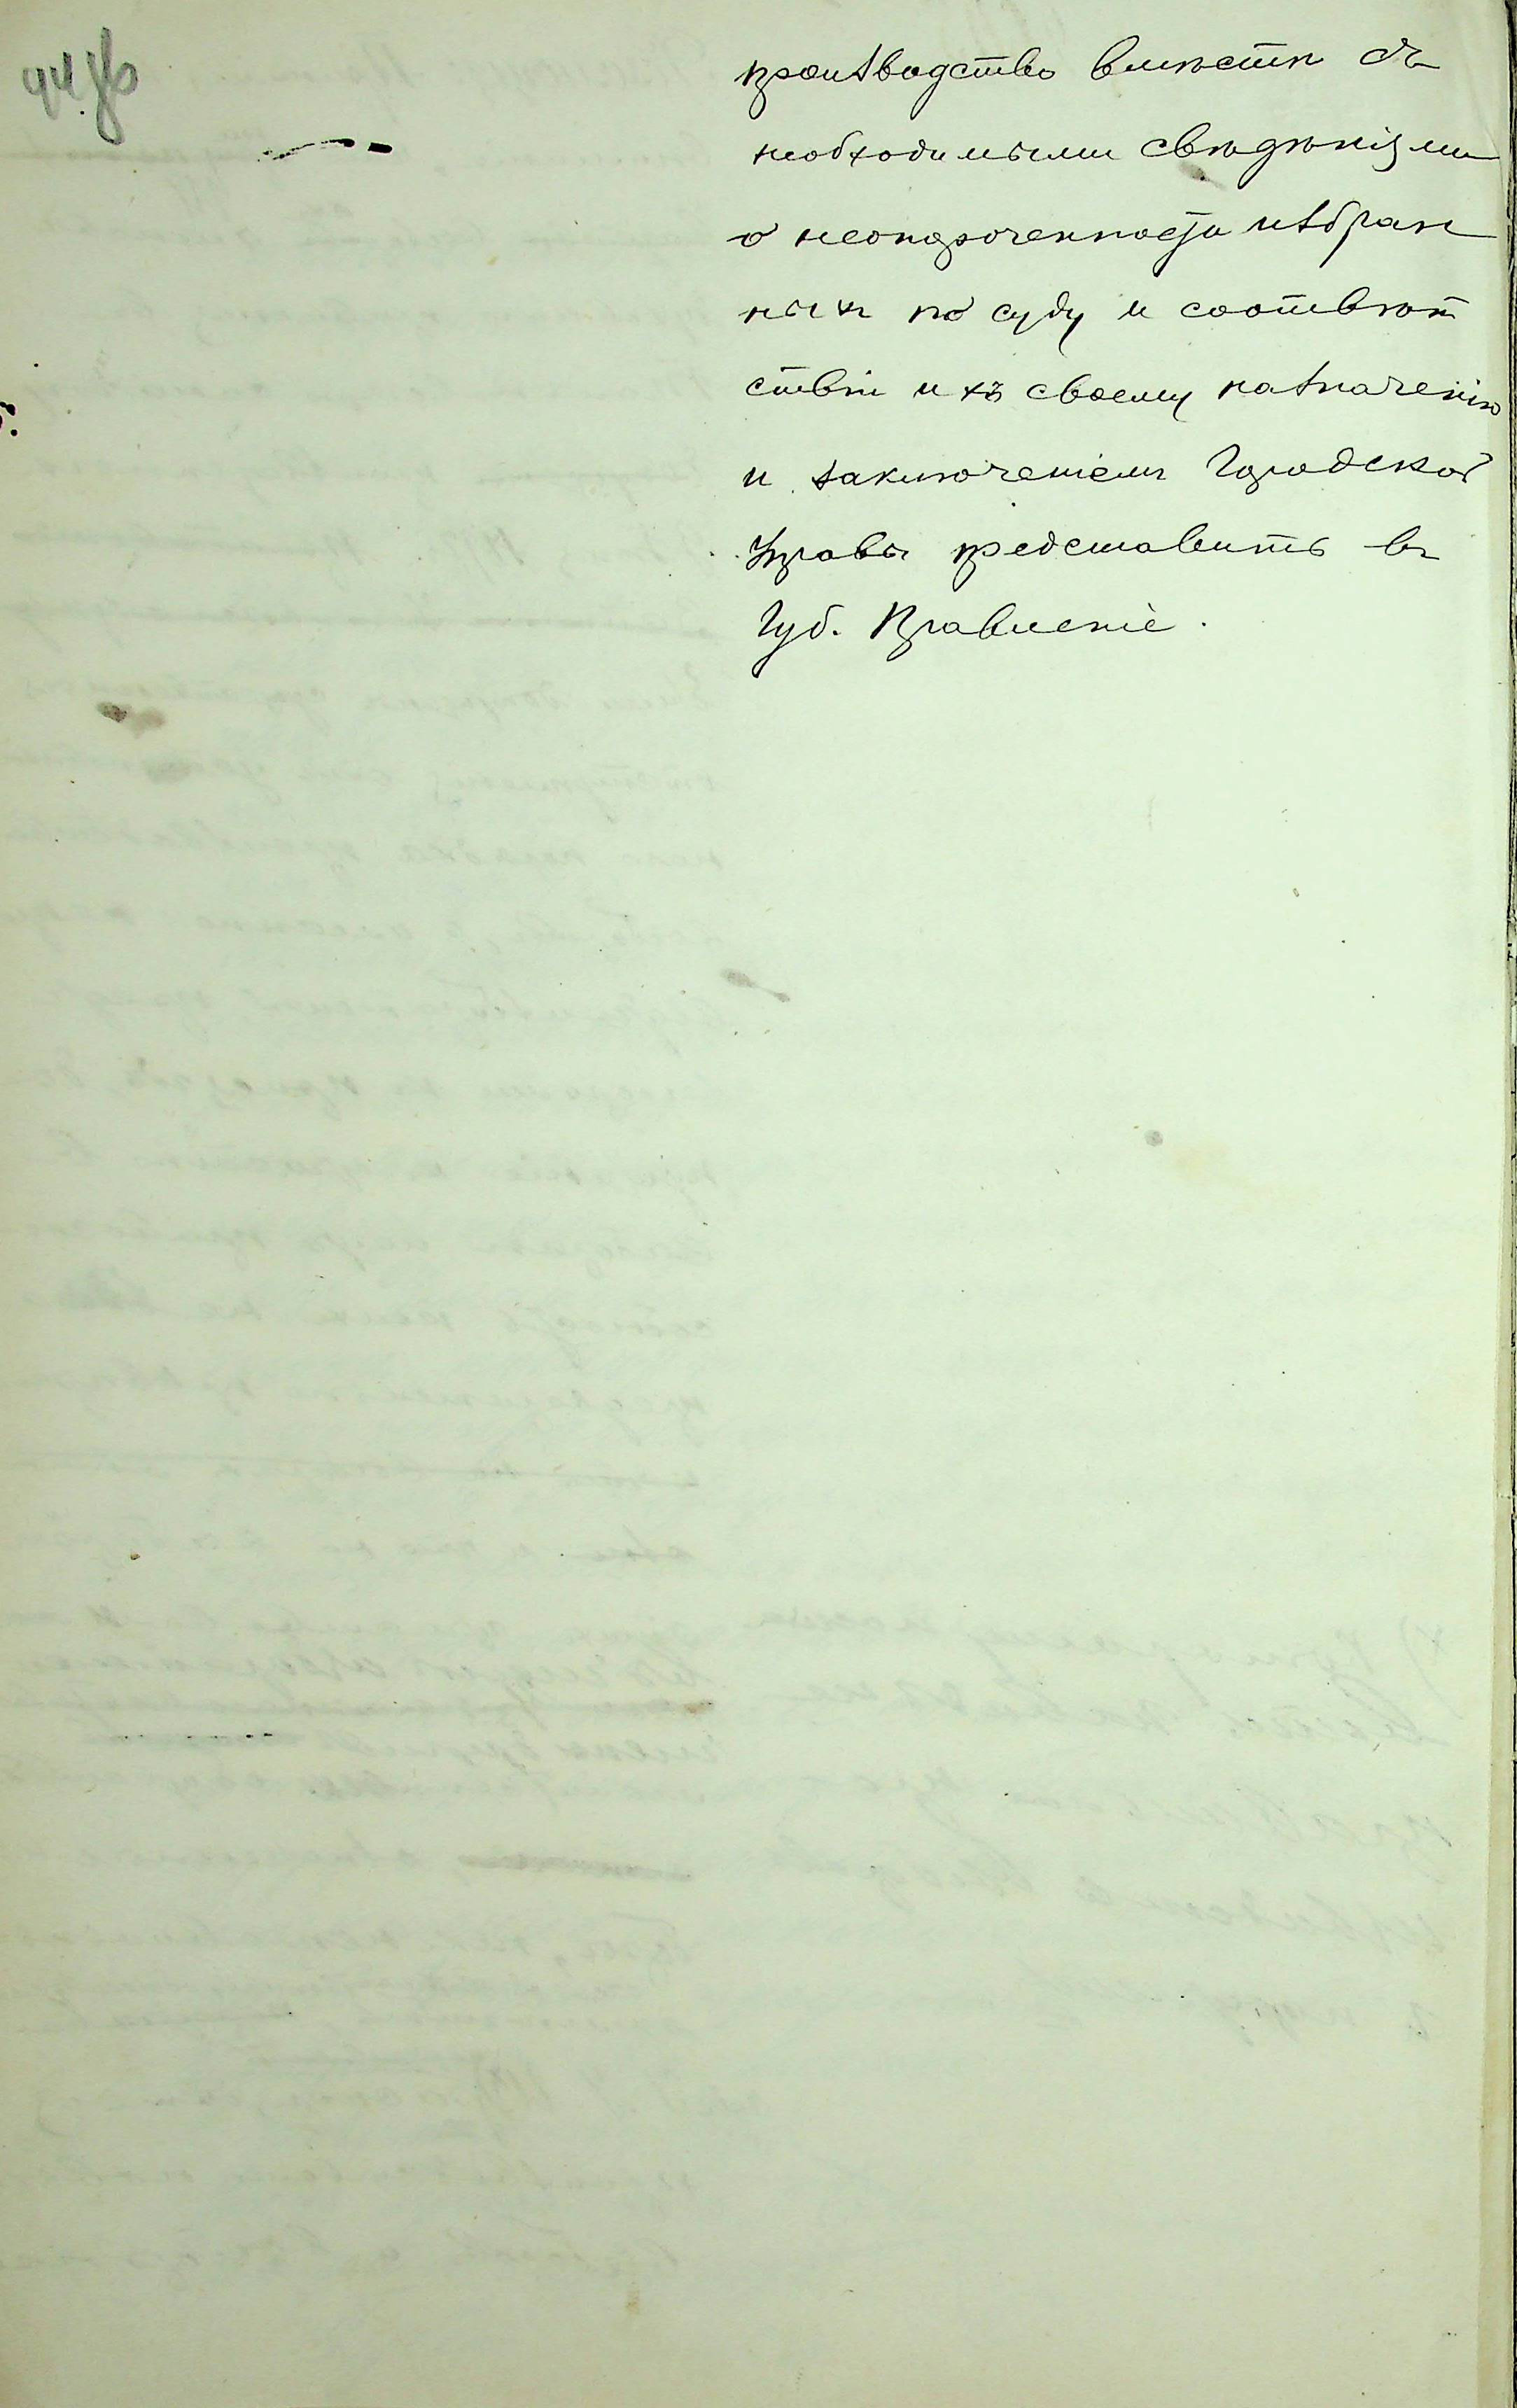 44 об
производство вмѣстѣ съ
необходимыми свѣдѣніями
о неопороченности избран
ныхъ по суду и соотвѣт
ствіи ихъ своему назначенію
и заключеніемъ Городской
Управы представить въ
Губ. Правленіе.